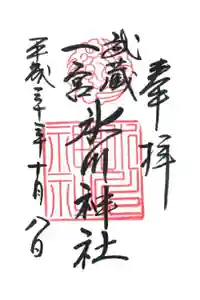 奉拝
武蔵
一宮
氷川神社
平成二十三年十月八日